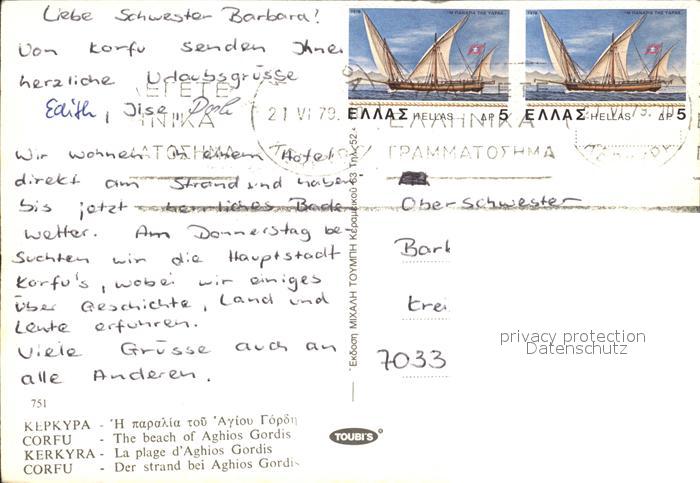 Liebe Schwester Barbara!
Von Korfu senden Ihnen
herzliche Urlaubsgrüsse
Edith, Ilse,
Wir wohnen in einem Hotel
direkt am Strand und haben
bis jetzt herrliches Bade
wetter. Am Donnerstag be-
suchten wir die Hauptstadt
Korfu's, wobei wir einiges
über Geschichte, Land und
Leute erfuhren.
Viele Grüsse auch an
alle Anderen.
751
ΚΕΡΚΥΡΑ - Ἡ παραλία τοῦ Ἁγίου Γόρδη
CORFU - The beach of Aghios Gordis
KERKYRA - La plage d'Aghios Gordis
CORFU - Der strand bei Aghios Gordis
Ἔκδοση ΜΙΧΑΛΗ ΤΟΥΜΠΗ Κεραμεικοῦ 63 Τηλ. 52
TOUBI'S
1978 "Η ΠΑΝΑΓΙΑ ΤΗΣ ΥΔΡΑΣ"
ΕΛΛΑΣ HELLAS ΔΡ 5
1978 "Η ΠΑΝΑΓΙΑ ΤΗΣ ΥΔΡΑΣ"
ΕΛΛΑΣ HELLAS ΔΡ 5
ΛΕΓΕΤΕ
ΗΝΙΚΑ
ΜΑΤΟΣΗΜΑ
21 VI 79
ΕΛΛΗΝΙΚΑ
ΓΡΑΜΜΑΤΟΣΗΜΑ
VI 79
Oberschwester
Bark
Krei
7033
privacy protection
Datenschutz